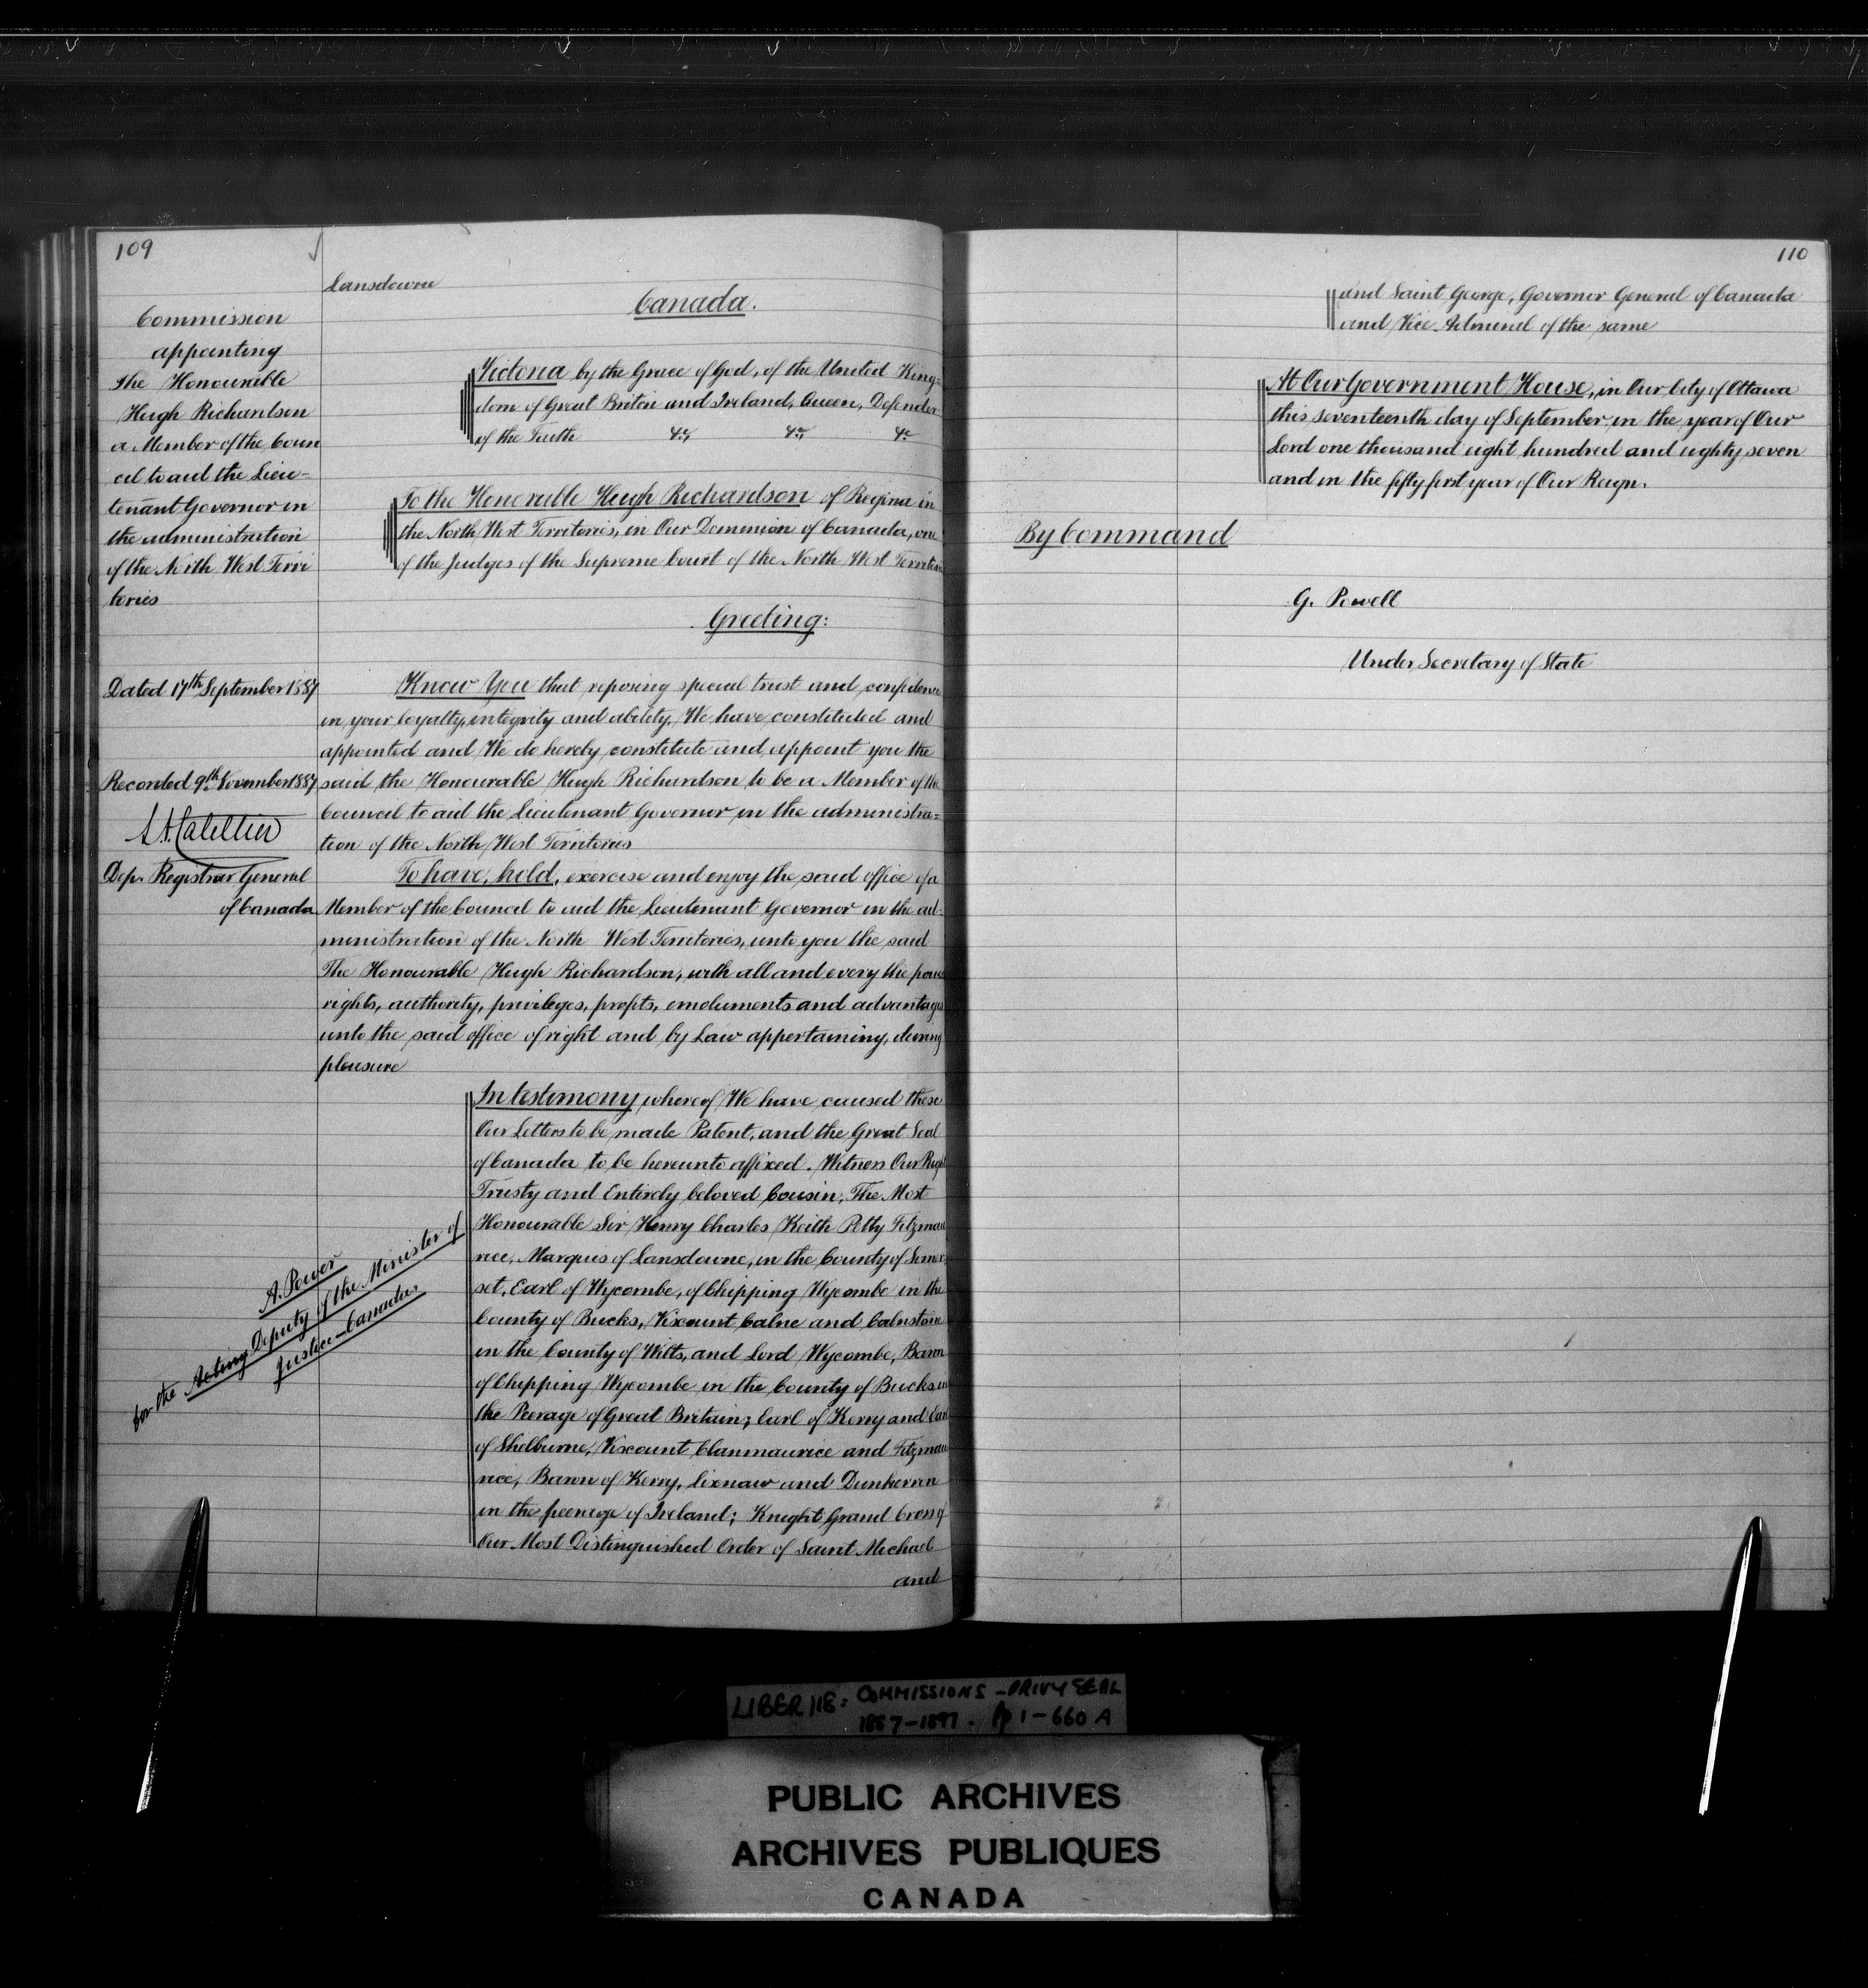 109
Commission
appointing
The Honourable
Hugh Richardson
a Member of the Coun
cil to aid the Lieu-
tenant Governor in
the administration
of the North West Terri
tories
Dated 17th September 1887
Recorded 9th November 1887
Dep. Registrar General
of Canada
A. Power
for the Acting Deputy of the Minister of
Justice-Canada.
Lansdowne
Canada.
Victoria by the Grace of God, of the United King-
dom of Great Britain and Ireland, Queen, Defender
of the Faith &c, &c, &c
To the Honorable Hugh Richardson of Regina in
the North West Territories, in Our Dominion of Canada, one
of the Judges of the Supreme Court of the North West Territories
Greeting:
Know You that reposing special trust and confidence
in your loyalty, integrity and ability, We have constituted and
appointed and We do hereby constitute and appoint you the
said the Honourable Hugh Richardson to be a Member of the
Council to aid the Lieutenant Governor in the administra=
tion of the North West Territories
To have, hold, exercise and enjoy the said office of a
Member of the Council to aid the Lieutenant Governor in the ad-
ministration of the North West Territories, unto you the said
The Honourable Hugh Richardson, with all and every the powers
rights, authority, privileges, profits, emoluments and advantages
unto the said office of right and by Law appertaining, during
pleasure
In testimony whereof We have caused these
Our Letters to be made Patent, and the Great Seal
of Canada to be hereunto affixed. Witness Our Right
Trusty and Entirely beloved Cousin, The Most
Honourable Sir Henry Charles Keith Petty Fitzmau
rice, Marquis of Lansdowne, in the County of Somer-
set, Earl of Wycombe, of Chipping Wycombe in the
County of Bucks, Viscount Calne and Calnstone
in the County of Wilts, and Lord Wycombe, Baron
of Chipping Wycombe in the County of Bucks in
the Peerage of Great Britain; Earl of Kerry and Earl
of Shelburne, Viscount Clanmaurice and Fitzmau
rice, Baron of Kerry, Lixnaw and Dunkerron
in the peerage of Ireland; Knight Grand Cross of
Our Most Distinguished Order of Saint Michael
and
110
and Saint George, Governor General of Canada
and Vice Admiral of the same
At Our Government House, in Our City of Ottawa
this seventeenth day of September in the year of Our
Lord one thousand eight hundred and eighty seven
and in the fifty first year of Our Reign.
By Command
G. Powell
Under Secretary of State
LIBER 118: COMMISSIONS - PRIVY SEAL
1887-1897. pp 1-660 A
PUBLIC ARCHIVES
ARCHIVES PUBLIQUES
CANADA